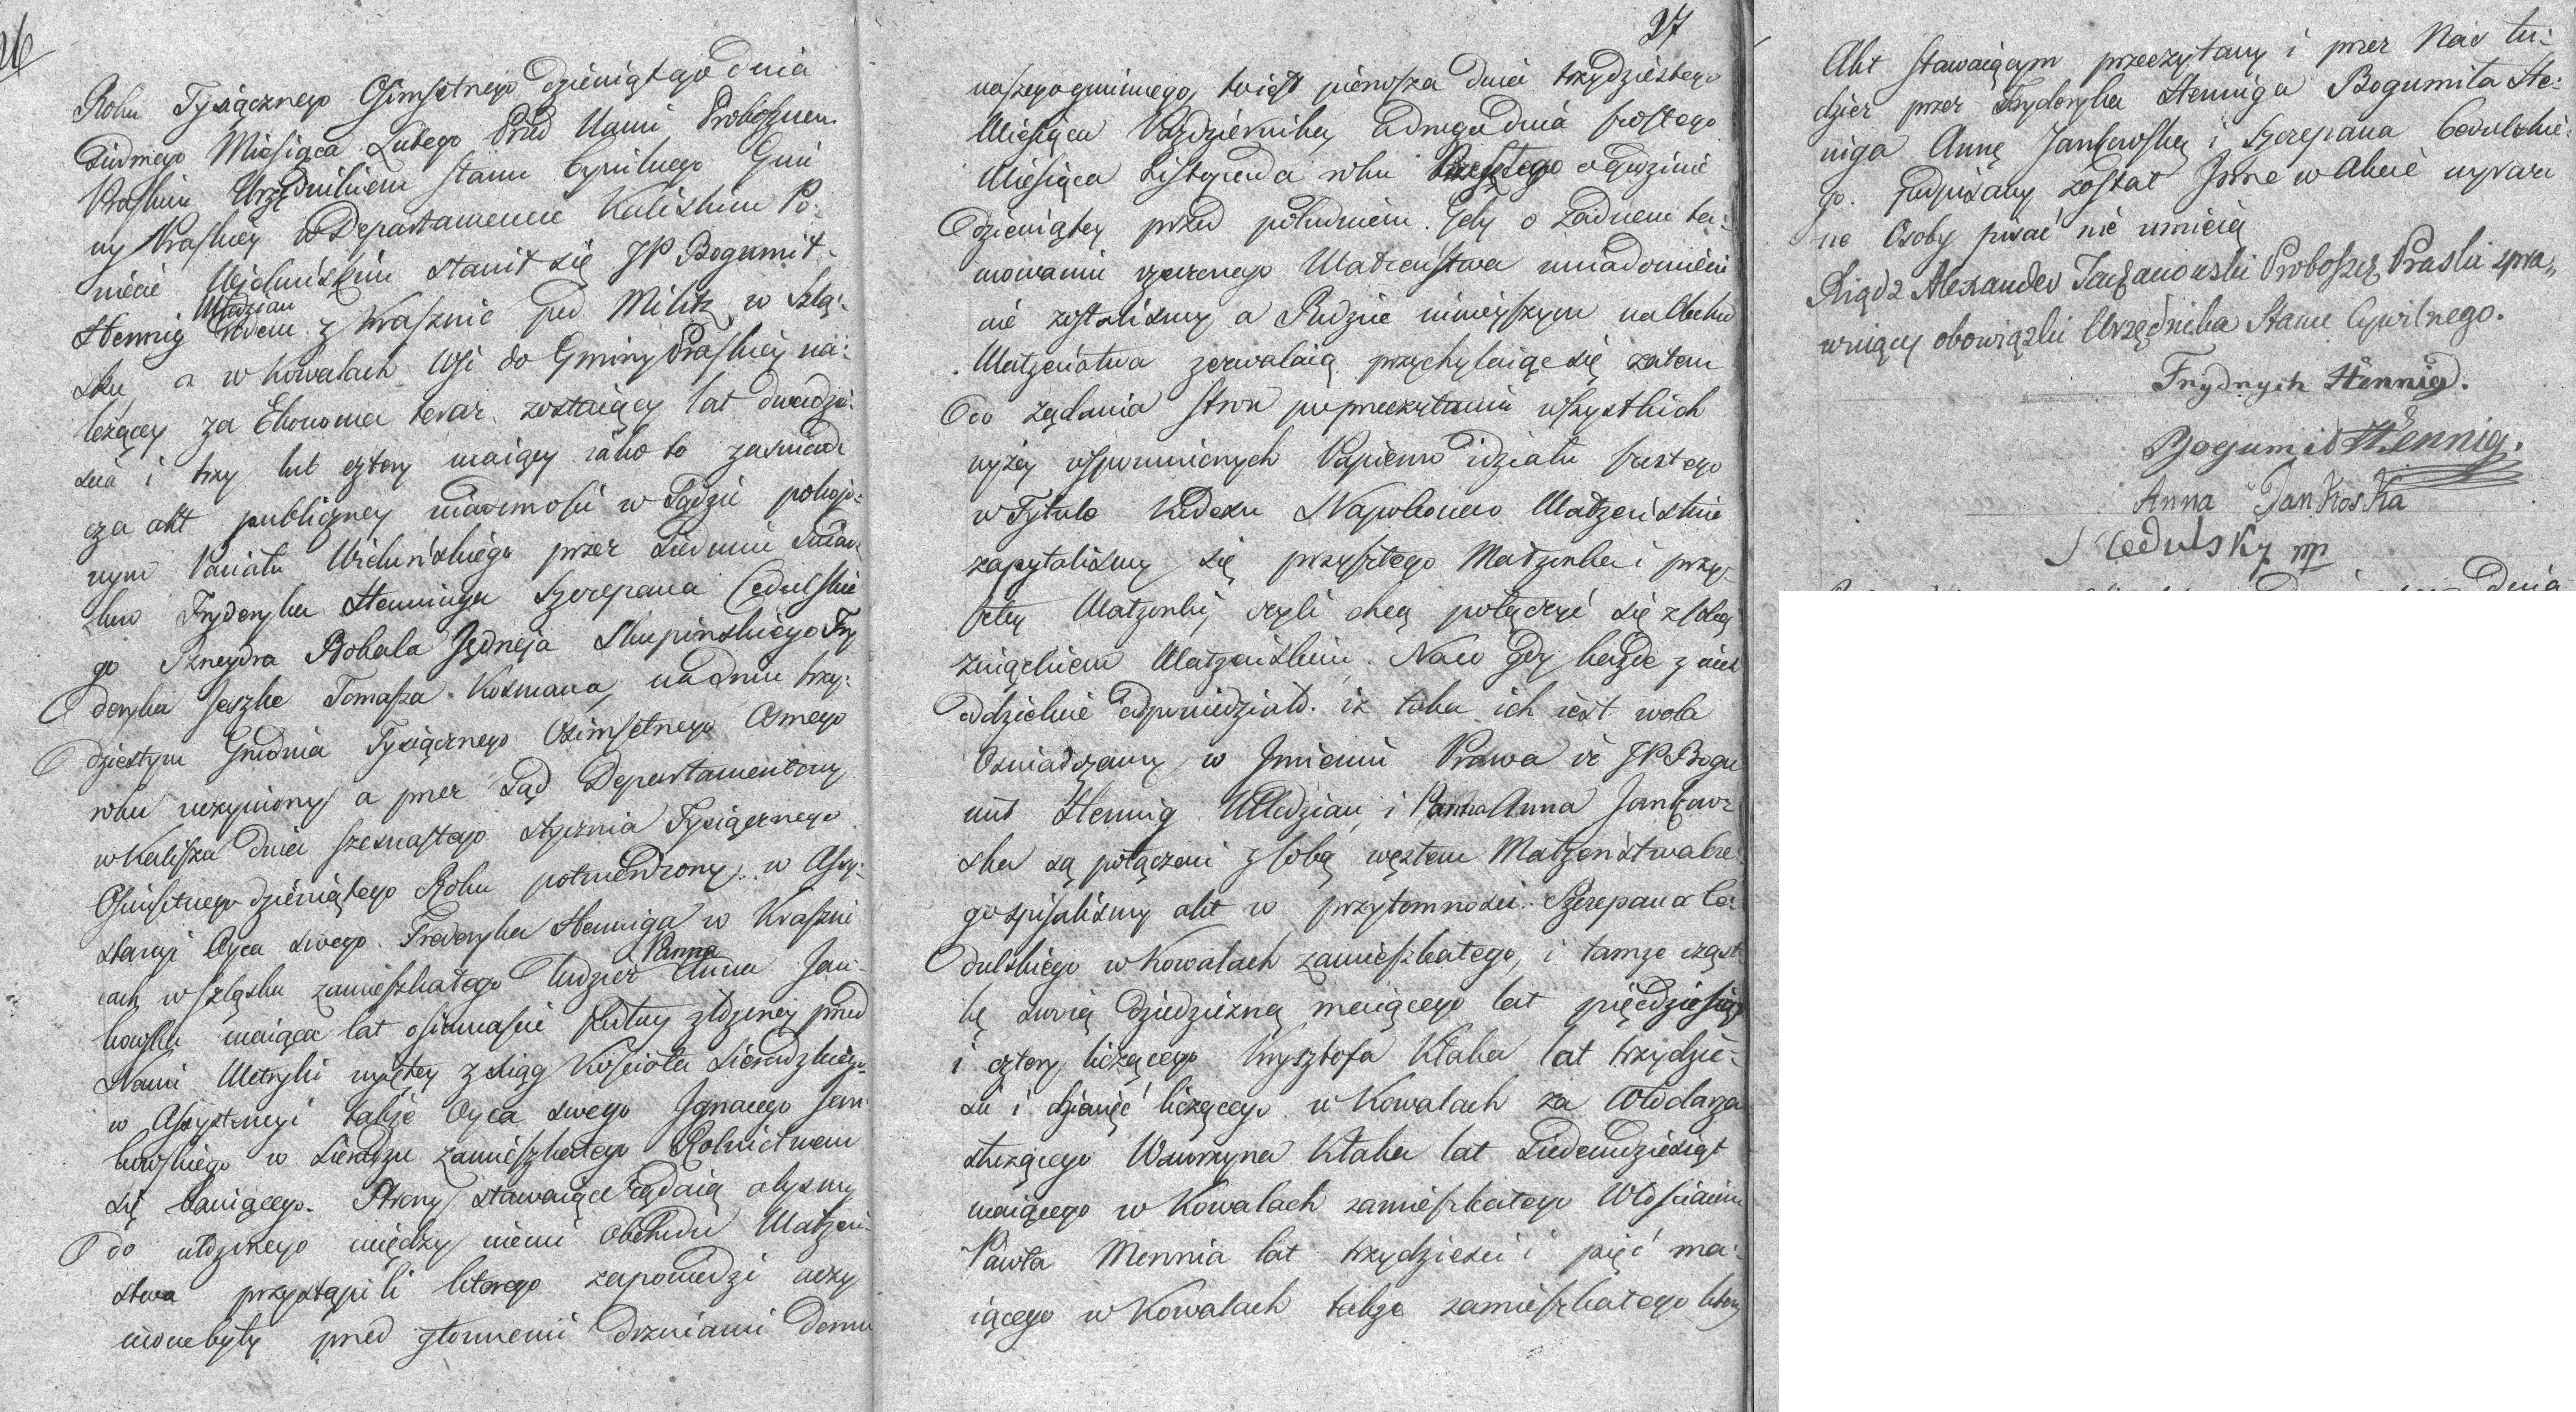 26
Roku Tysiącznego Osimsetnego dziewiątego dnia
Siudmego Miesiąca Lutego Przed Nami Proboszczem
Praskim Urzędnikiem Stanu Cywilnego Gmi
ny Praskiey w Departamencie Kaliskim Po-
wiecie Wieluńskim stawił się JP Bogumił
Młodzian
Hennig z Krasznic pod Militz w Szlą-
sku, a w Kowalach Wsi do Gminy Praskiey na-
leżącey za Ekonoma teraz zostaiący lat dwadzie-
scia i trzy lub cztery maiący iako to zaswiad
cza akt publiczney wiadomosci w Sądzie pokojo-
wym Powiatu Wieluńskiego przez siedmiu Swiad-
kow Fryderyka Henninga Szczepana Cędulskie
go Szneydra Robala Jędrzeja Skupinskiego Fry
deryka Jeszke Tomasza Kosmana, na dniu trzy-
dziestym Grudnia Tysiącznego Osimsetnego Osmego
roku uczyniony a przez Sąd Departamentowy
w Kaliszu dnia szesnastego stycznia Tysiącznego
Osimsetnego dziewiątego Roku potwierdzony w Assy-
stencyi Oyca swego Frederyka Henniga w Kraszni
cach w szląsku zamieszkałego tudzież Anna Jan-
Panna
kowska maiąca lat osiemnascie podług złożoney przed
Nami Metryki wyiętey z xiąg Kościoła Sieradzkiego
w Assystencyi także Oyca swego Ignacego Jan
kowskiego w Sieradzu zamieszkałego Rolnictwem
się bawiącego. Strony stawaiące żądaią abysmy
do ułożonego między niemi obchodu Małżeń-
stwa przystąpili ktorego zapowiedzi uczy
nione były przed głownemi drzwiami domu
27
naszego gminnego, to iest pierwsza dnia trzydziestego
Miesiąca Pazdziernika, a druga dnia szostego
Miesiąca Listopada roku Przeszłego o godzinie
dziewiątey przed południem. Gdy o żadnem ta-
mowaniu rzeczonego Małżeństwa uwiadomieni
nie zostalismy a Rodzice ninieyszym na Obchod
Małżeństwa zezwalaią, przychylaiąc się zatem
do żądania stron po przeczytaniu wszystkich
wyżey wspomnionych Papierow i działu szostego
w Tytule Kodexu Napoleona o Małżeństwie
zapytalismy się przyszłego Małżonka i przy-
szłey Małżonki, czyli chcą połączyć się z sobą
związkiem Małżeńskim. Na co gdy każde z nich
oddzielnie odpowiedziało. iż taka ich iest wola
Oświadczamy w Jmieniu Prawa iż JP. Bogu
mił Hennig Młodzian, i Panna Anna Jankow
ska są połączeni z sobą węzłem Małżeństwa cze-
go spisalismy akt w przytomności Szczepana Ce-
dulskiego w Kowalach zamieszkałego, i tamże cząst-
kę swoią dziedziczną maiącego lat pięćdziesiąt
i cztery liczącego Krysztofa Kłaka lat trzydzie-
sci i dziewięć liczącego w Kowalach za Włodarza
służącego Wawrzyna Kłaka lat siedemdziesiąt
maiącego w Kowalach zamieszkałego Włoscianin
Pawła Mennia lat trzydziesci i pięć ma-
iącego w Kowalach także zamieszkałego ktory
Akt stawaiącym przeczytany i przez Nas tu-
dzież przez Fryderyka Henniga Bogumiła He-
niga Annę Jankowską i Szczepana Cedulskie-
go podpisany został Jnne w Akcie wyrażo
ne Osoby pisać nie umieią
Xiądz Alexander Taczanowski Proboszcz Praski spra-
wuiący obowiązki Urzędnika Stanu Cywilnego.
Frydrych Hennig.
Bogumił Hennig.
Anna Jankoska
S Cedulsky mp
Dnia